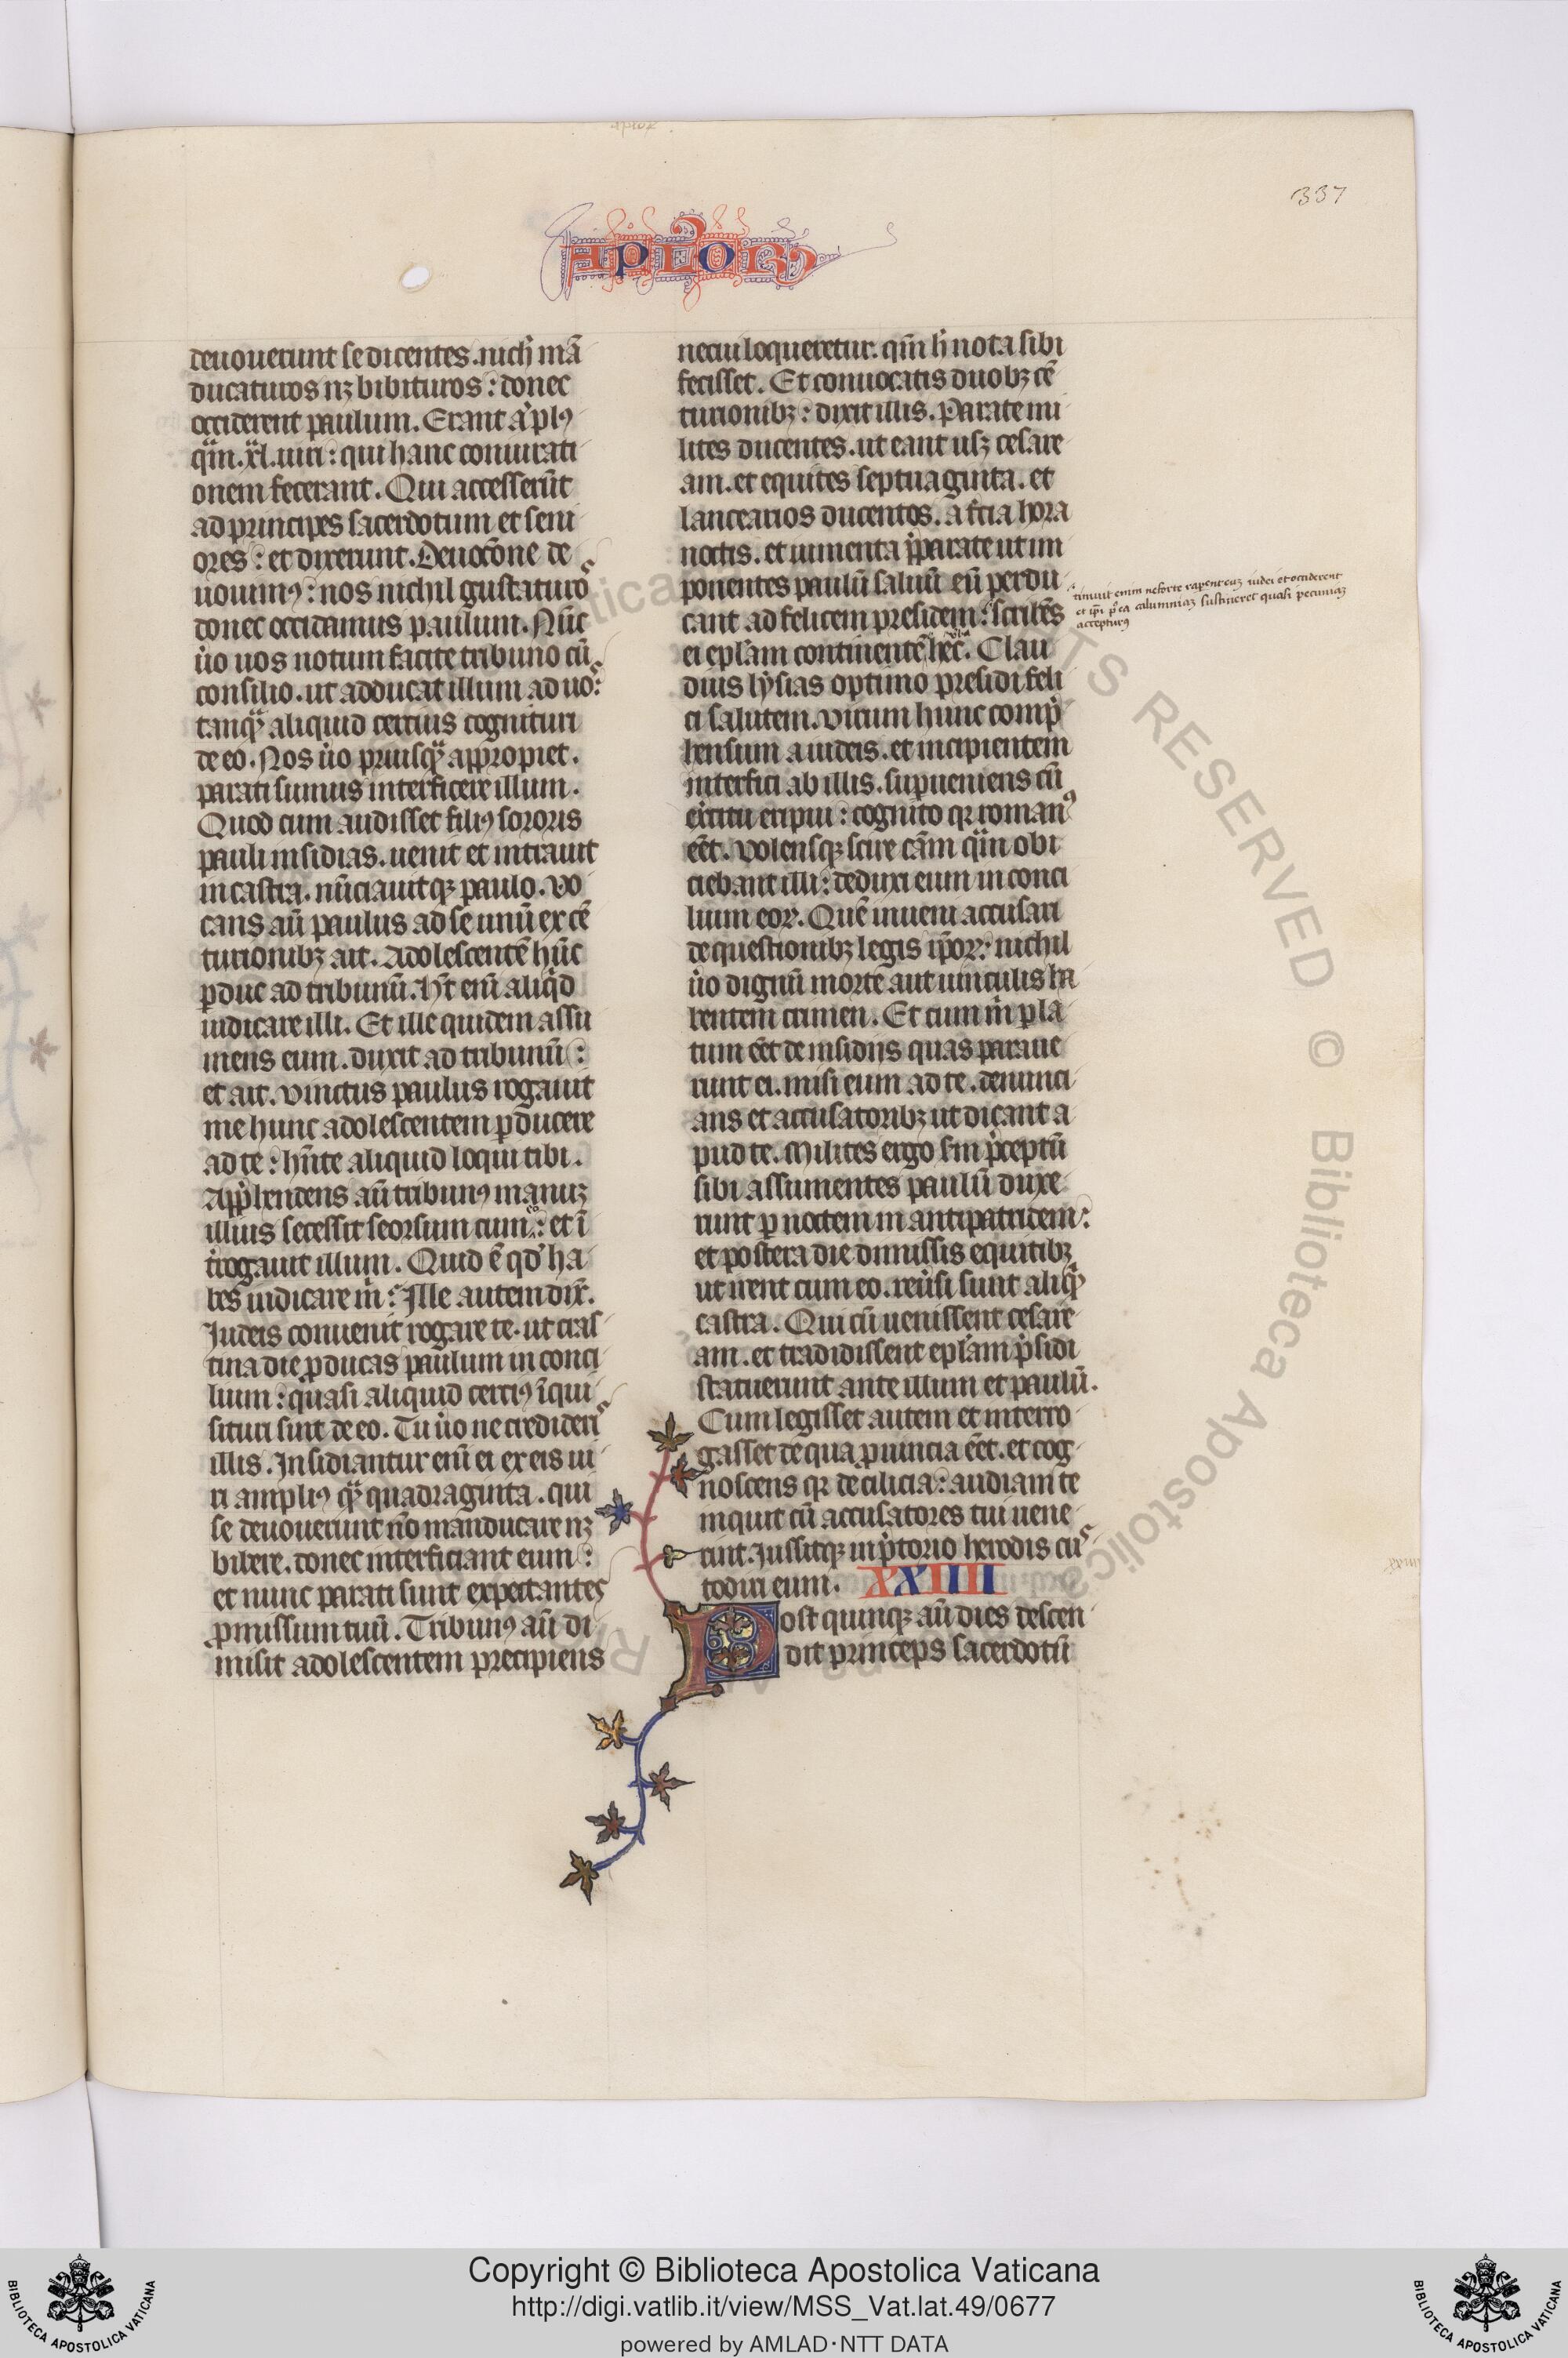 aploꝝ
337
Aploꝝ
deuouerunt se dicentes. nichͥ mā
ducaturos nꝫ bibituros: donec
occiderent paulum. Erant aͥ plꝰ
qͣm .xl. uiri: qui hanc coniurati
onem fecerant. Qui accesserūt
ad principes sacerdotum et seni
ores: et dixerunt. Deuocōne de
uouimꝰ: nos nichil gustaturos
donec occidamus paulum. Nūc
u̾o uos notum facite tribuno cū
consilio. ut adducat illum ad uos:
tanqͣꝫ aliquid certius cognituri
de eo. Nos u̾o priusqͣꝫ appropiet.
parati sumus interficere illum.
Quod cum audisset filiꝰ sororis
pauli insidias. uenit et intrauit
in castra. nūciauitqꝫ paulo. Vo
cans aū paulus ad se unū ex cē
turionibꝫ ait. Adolescentē hūc
ꝑduc ad tribunū. Ht̄ enī aliqͥd
indicare illi. Et ille quidem assu
mens eum. duxit ad tribunū:
et ait. Vinctus paulus rogauit
me hunc adolescentem ꝑducere
ad te: hn̄te aliquid loqui tibi.
Appͤhendens aū tribunꝰ manuꝫ
illius secessit seorsum cum eo: et ī
t̾rogauit illum. Quid ē qd̓ ha
bes indicare mͥ: Ille autem dix̄.
Iudeis conuenit rogare te. ut cras
tina die ꝓducas paulum in conci
lium: quasi aliquid certiꝰ īqui
situri sint de eo. Tu u̾o ne credideris
illis. Insidiantur enī ei ex eis ui
ri ampliꝰ qͣꝫ quadraginta. qui
se deuouerunt nō manducare nꝫ
bibere. donec interficiant eum:
et nunc parati sunt expectantes
ꝓmissum tuū. Tribunꝰ aū di
misit adolescentem precipiens
ne cui loqueretur. qm̄ hͨ nota sibi
fecisset. Et conuocatis duobꝫ cē
turionibꝫ: dixit illis. Parate mi
lites ducentes. ut eant usꝫ cesare
am. et equites septuaginta. et
lancearios ducentos. a tͨia hora
noctis. et iumenta pͤparate ut im
ponentes paulū saluū eū perdu
cant ad felicem presidem: scribēs
ei epl̄am continentē hec. Clau
dius lysias optimo presidi feli
ci salutem. Virum hunc compͤ
hensum a iudeis. et incipientem
interfici ab illis. supueniens cū
ex̾citu eripui: cognito qꝛ romanꝰ
eēt. Volensqꝫ scire cām qͣm obi
ciebant illi: deduxi eum in conci
lium eoꝝ. Quē inueni accusari
de questionibꝫ legis ip̄oꝝ: nichil
u̾o dignū morte aut uinculis ha
bentem crimen. Et cum mͥ ꝑla
tum eēt de insidiis quas paraue
runt ei. misi eum ad te. denunci
ans et accusatoribꝫ ut dicant a
pud te. Milites ergo sm̄ pͤceptū
sibi assumentes paulū duxe
runt ꝑ noctem in antipatridem:
et postera die dimissis equitibꝫ
ut irent cum eo. reu̾si sunt ad
castra. Qui cū uenissent cesare
am. et tradidissent epl̄am pͤsidi
statuerunt ante illum et paulū.
Cum legisset autem et interro
gasset de qua ꝓuincia eēt. et cog
noscens qꝛ de cilicia: audiam te
inquit cū accusatores tui uene
rint. Iussitqꝫ in pͤtorio herodis cus
todiri eum. XXIIII
Post quinqꝫ aū dies descen
dit princeps sacerdotū
timuit enim ne forte raperent euꝫ iudei et occiderent
et ip̄e p̄ ea calumniaꝫ sustineret quasi pecuniaꝫ
accepturꝰ
RIGHTS RESERVED © Biblioteca Apostolica Vaticana
Copyright © Biblioteca Apostolica Vaticana
http://digi.vatlib.it/view/MSS_Vat.lat.49/0677
powered by AMLAD·NTT DATA
BIBLIOTECA APOSTOLICA VATICANA
BIBLIOTECA APOSTOLICA VATICANA